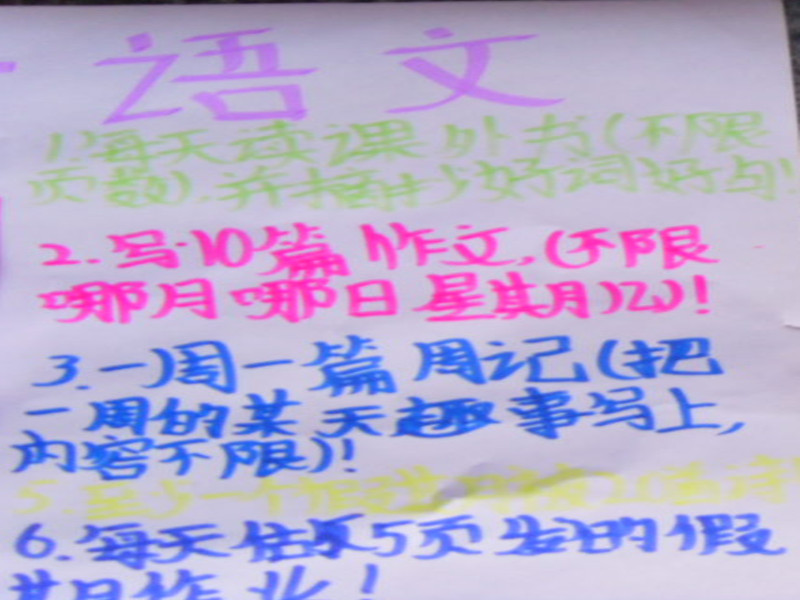 语文
1.每天读课外书(不限
页数),并摘抄好词好句!
2.写10篇作文,(不限
哪月哪日星期几)!
3.一周一篇周记(把
一周的某天趣事写上,
内容不限)!
5.至少一个假期
6.每天做5页发的假
期作业!